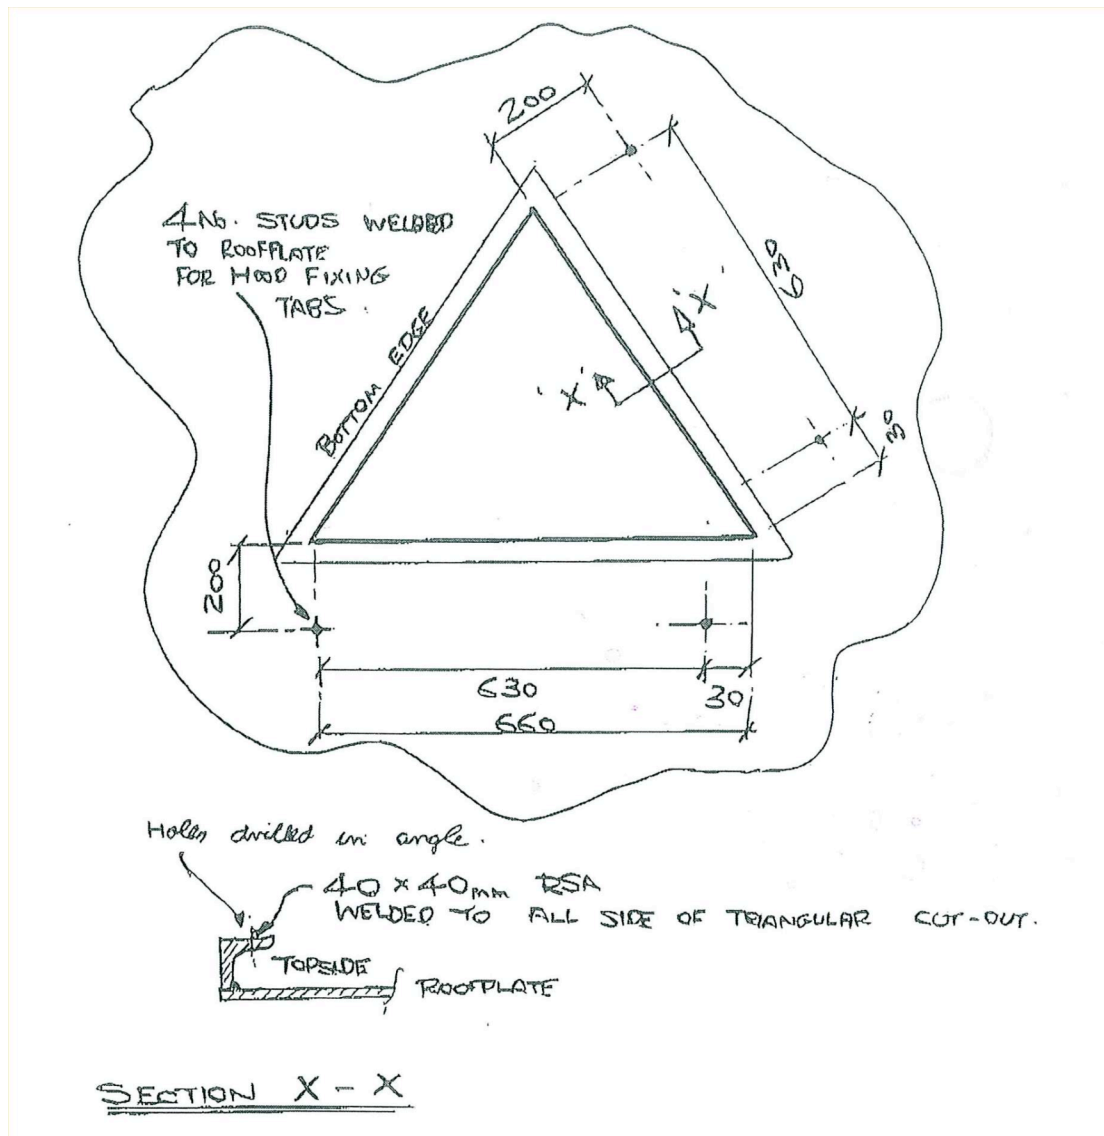 200
4 No. STUDS WELDED
TO ROOFPLATE
FOR HOOD FIXING
TABS.
630
BOTTOM EDGE
'X'
'X'
30
200
630
30
660
Holes drilled in angle.
40 x 40mm RSA
WELDED TO ALL SIDE OF TRIANGULAR CUT-OUT.
TOPSIDE
ROOFPLATE
SECTION X - X